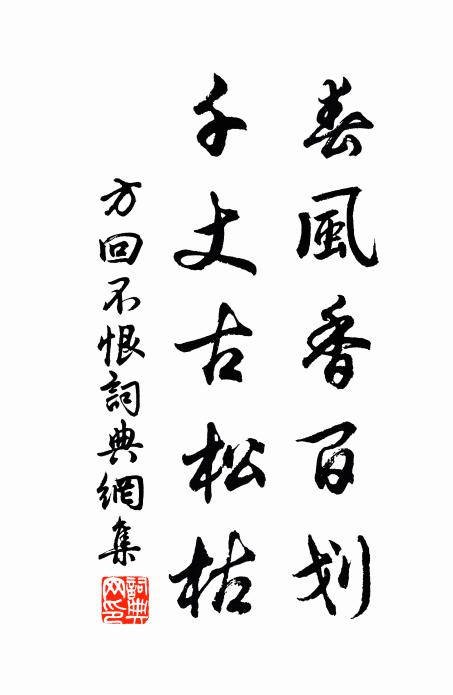 春風香百划
千丈古松枯
方回不恨詞典網集
詞典網印